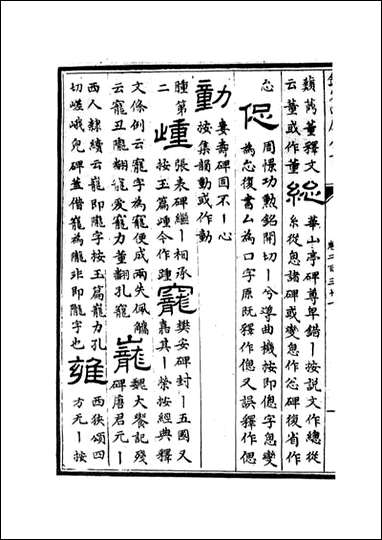 蘱茂董釋文
云董或作董
總
華山亭碑尊卑錯丨按説文作總從
糸從悤諸碑或變悤作怱碑復省作
怱
偬
周憬功勲銘開切丨兮導曲機按即傯字悤變
為怱復書厶為口字原既釋作傯又誤釋作偲
動
婁壽碑固不丨心
按集韻動或作動
歱
張表碑繼丨相承
按玉篇歱今作踵
腫第
二
寵
樊安碑封丨五國又
嘉其丨榮按經典釋
文條例云寵字為寵便成兩失佩觿
云寵丑隴翻寵愛寵力董翻孔寵
巃
魏大饗記殘
碑唐君元丨
西人隸續云巃即隴字按玉篇巃力孔
切嵯峨皃碑蓋借巃為隴非即隴字也
雍
西狹頌四
方元丨按
卷二百三十一